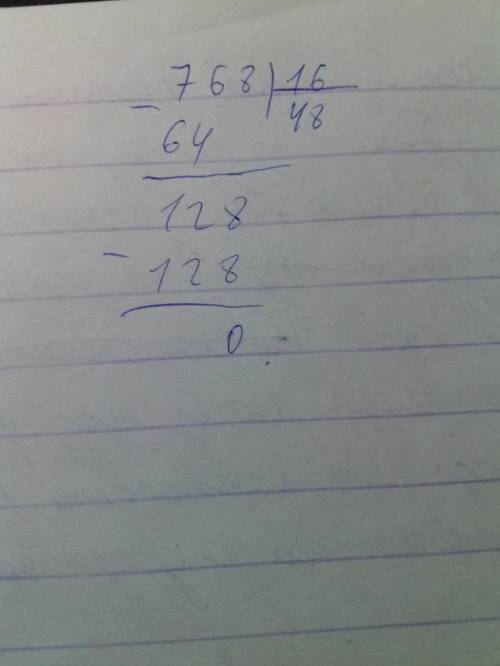 768 | 16
− 48
64
128
− 128
0